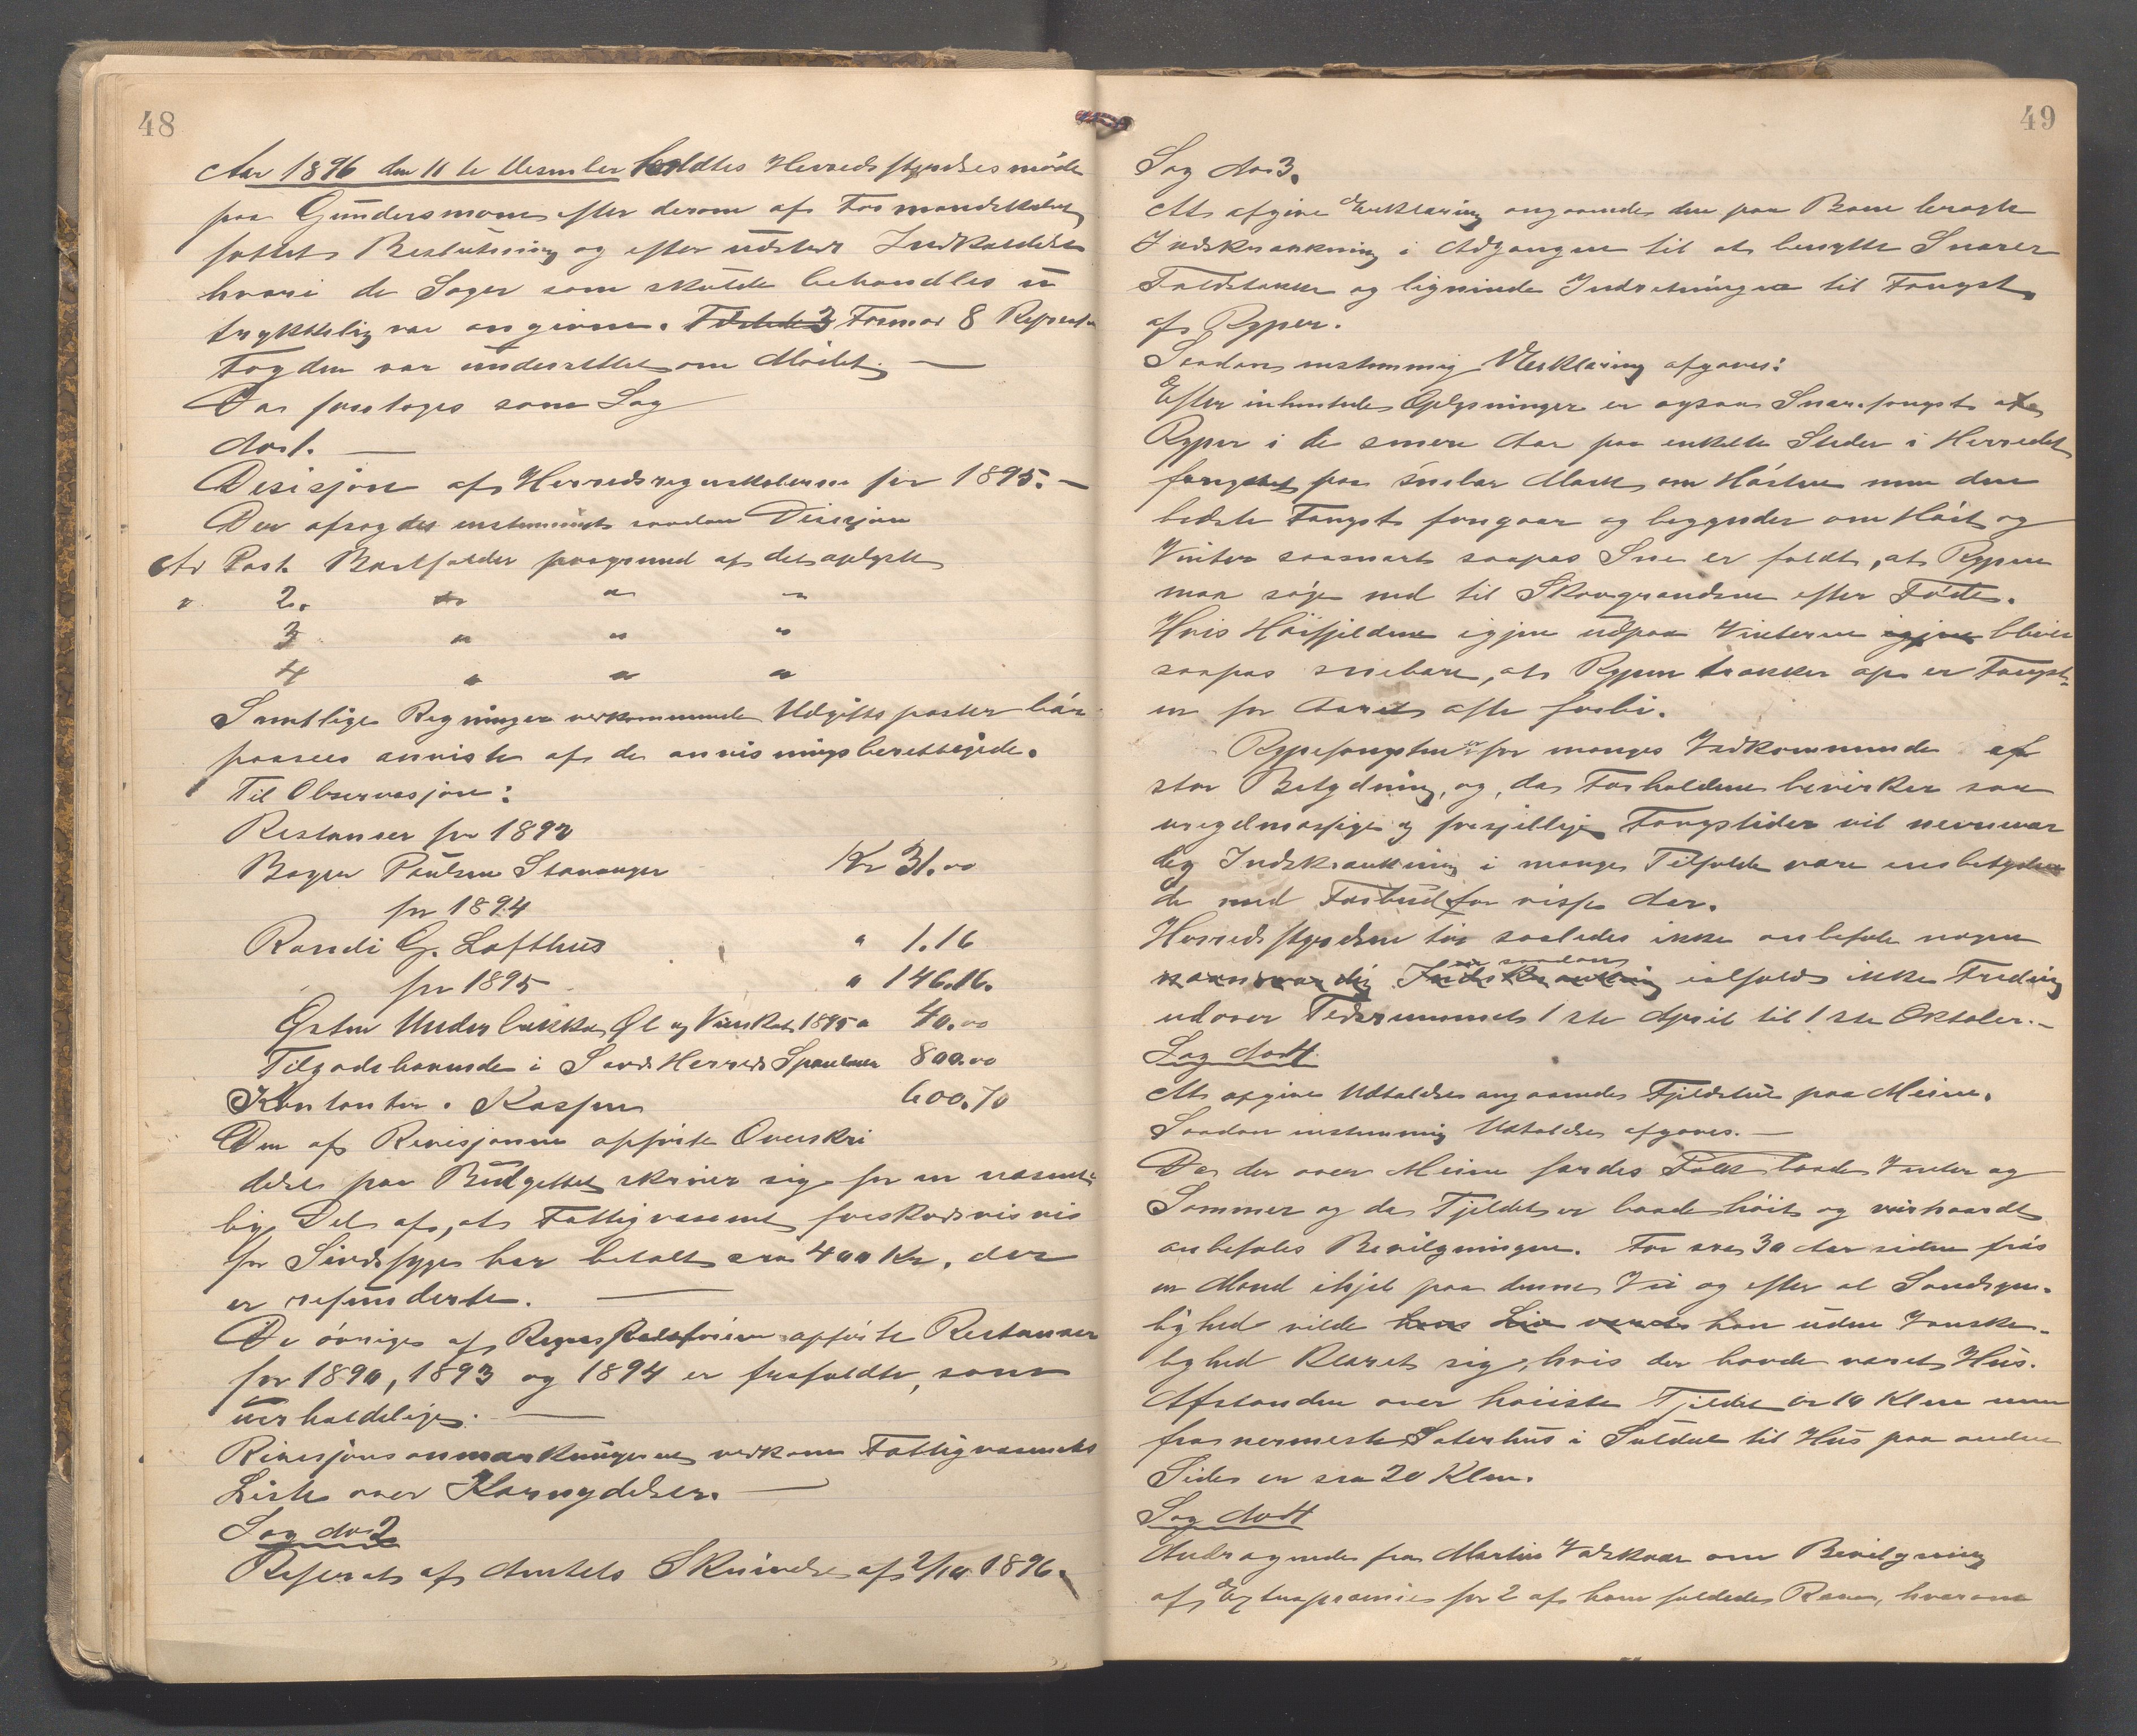 48
Aar 1896 den 11 te Desember holdtes Herredsstyrelsesmöde
paa Gundersmoen efter derom af Formandskabet
fattet Beslutning og efter udstedt Indkaldelse
hvori de Sager som skulde behandles u
trykkelig var angivne. Tilstede 3 Formæ 8 Repræs.
Fogden var underrettet om Mödet. —
Der foretoges som Sag
No 1. —
Desisjon af Herredsregnskaberne for 1895. —
Der afsagdes enstemmigt saadan Desisjon
Ad Post 1. Bortfalder paagrund af det oplyste
" 2. " " "
3 " " "
4 " " "
Samtlige Regninger vedkommende Udgiftsposter bör
paasees anviste af de anvisningsberettigede.
Til Observasjon:
Restanser for 1892
Bager Paulsen Stavanger Kr 31.00
for 1894
Randi G. Lofthus " 1.16
for 1895 " 146.16.
Östen Underbakke, Øl og Vinskat 1895 " 40.00
Tilgodehavende i Sands Herreds Sparebank 800.00
Kontanter i Kassen 600.70
Den af Revisjonen opförte Overskri
delse paa Budgettet skriver sig for en væsent-
lig Del af, at Fattigvæsenet forskudsvis
for Sindssyge har betalt ca 400 Kr. der
er refunderte. —
De övrige af opförte Restanser
for 1890, 1893 og 1894 er frafaldte, som
uerholdelige. —
Revisjonsanmærkningerne vedkom Fattigvæsenets
Liste over Kornydelser. —
Sag No 2
Referat af Amtets Skrivelse af 2/10 1896.
49
Sag No 3.
At afgive Erklæring angaaende den paa Bane bragte
Indskrænkning i Adgangen til at benytte Snarer
Faldstokke og lignende Indretninger til Fangst
af Ryper.
Saadan enstemmig Erklæring afgaves:
Efter indhentede Oplysninger er ogsaa Snarefangst af
Ryper i de senere Aar paa enkelte Steder i Herredet
foregaaet paa snebar Mark om Hösten men den
bedste Fangst foregaar og begynder om Höst og
Vinter saasnart saapas Sne er faldt, at Rypen
maa söge ned til Skovgrændsen efter Föde.
Hvis Höifjeldene igjen udpaa Vinteren igjen bliver
saapas snebare, at Rypen trækker op er Fangst-
en for Aaret ofte forbi.
Rypefangsten er for manges Vedkommende af
stor Betydning, og, da Forholdene bevirker saa
uregelmæssige og forsjellige Fangstider vil nævnevær
dig Indskrænkning i mange Tilfælde være ensbetyden
de med Forbud for visse Aar.
Herredsstyrelsen tör saaledes ikke anbefale nogen
en saadan
nævneværdig Indskrænkning ialfald ikke Fredning
udover Tidsrummet 1ste April til 1ste Oktober. —
Sag No 4
At afgive Udtalelse angaaende Fjeldstue paa Meine.
Saadan enstemmig Udtalelse afgaves. —
Da der over Meine færdes Folk baade Vinter og
Sommer og da Fjeldet er baade höit og veirhaardt
anbefales Bevilgningen. For ca 30 Aar siden frös
en Mand ihjel paa denne Vei og efter al Sandsyn-
lighed vilde hans Liv været han uden Vanske-
lighed klaret sig, hvis der havde været Hus.
Afstanden over höieste Fjeldet er 10 Klm men
fra nærmeste Sæterhus i Suldal til Hus paa anden
Side er ca 20 Klm.
Sag No 4
Andragende fra Martin om Bevilgning
af Extrapræmie for 2 af ham fældede Ræve, hvoraf